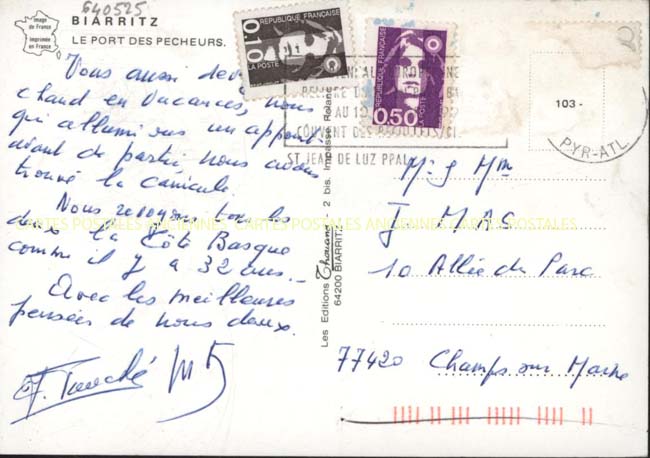 640525
Image de France
Imprimée en France
BIARRITZ
LE PORT DES PECHEURS.
Vous aussi
chaud en vacances, nous
qui
avant de partir nous avons
trouvé la canicule.
Nous revoyons tous les
deux la Côte Basque
comme il y a 32 ans.
Avec les meilleures
pensées de nous deux.
Les Editions Thouand 2 bis, Impasse
64200 BIARRITZ
0,10
REPUBLIQUE FRANÇAISE
LA POSTE
REPUBLIQUE FRANÇAISE
0,50
LA POSTE
ST JEAN DE LUZ PPAL
103 -
PYR-ATL
Mr & Mme
J MAS
10 Allée du Parc
77420 Champs sur Marne
CARTES POSTALES ANCIENNES CARTES POSTALES ANCIENNES CARTES POSTALES